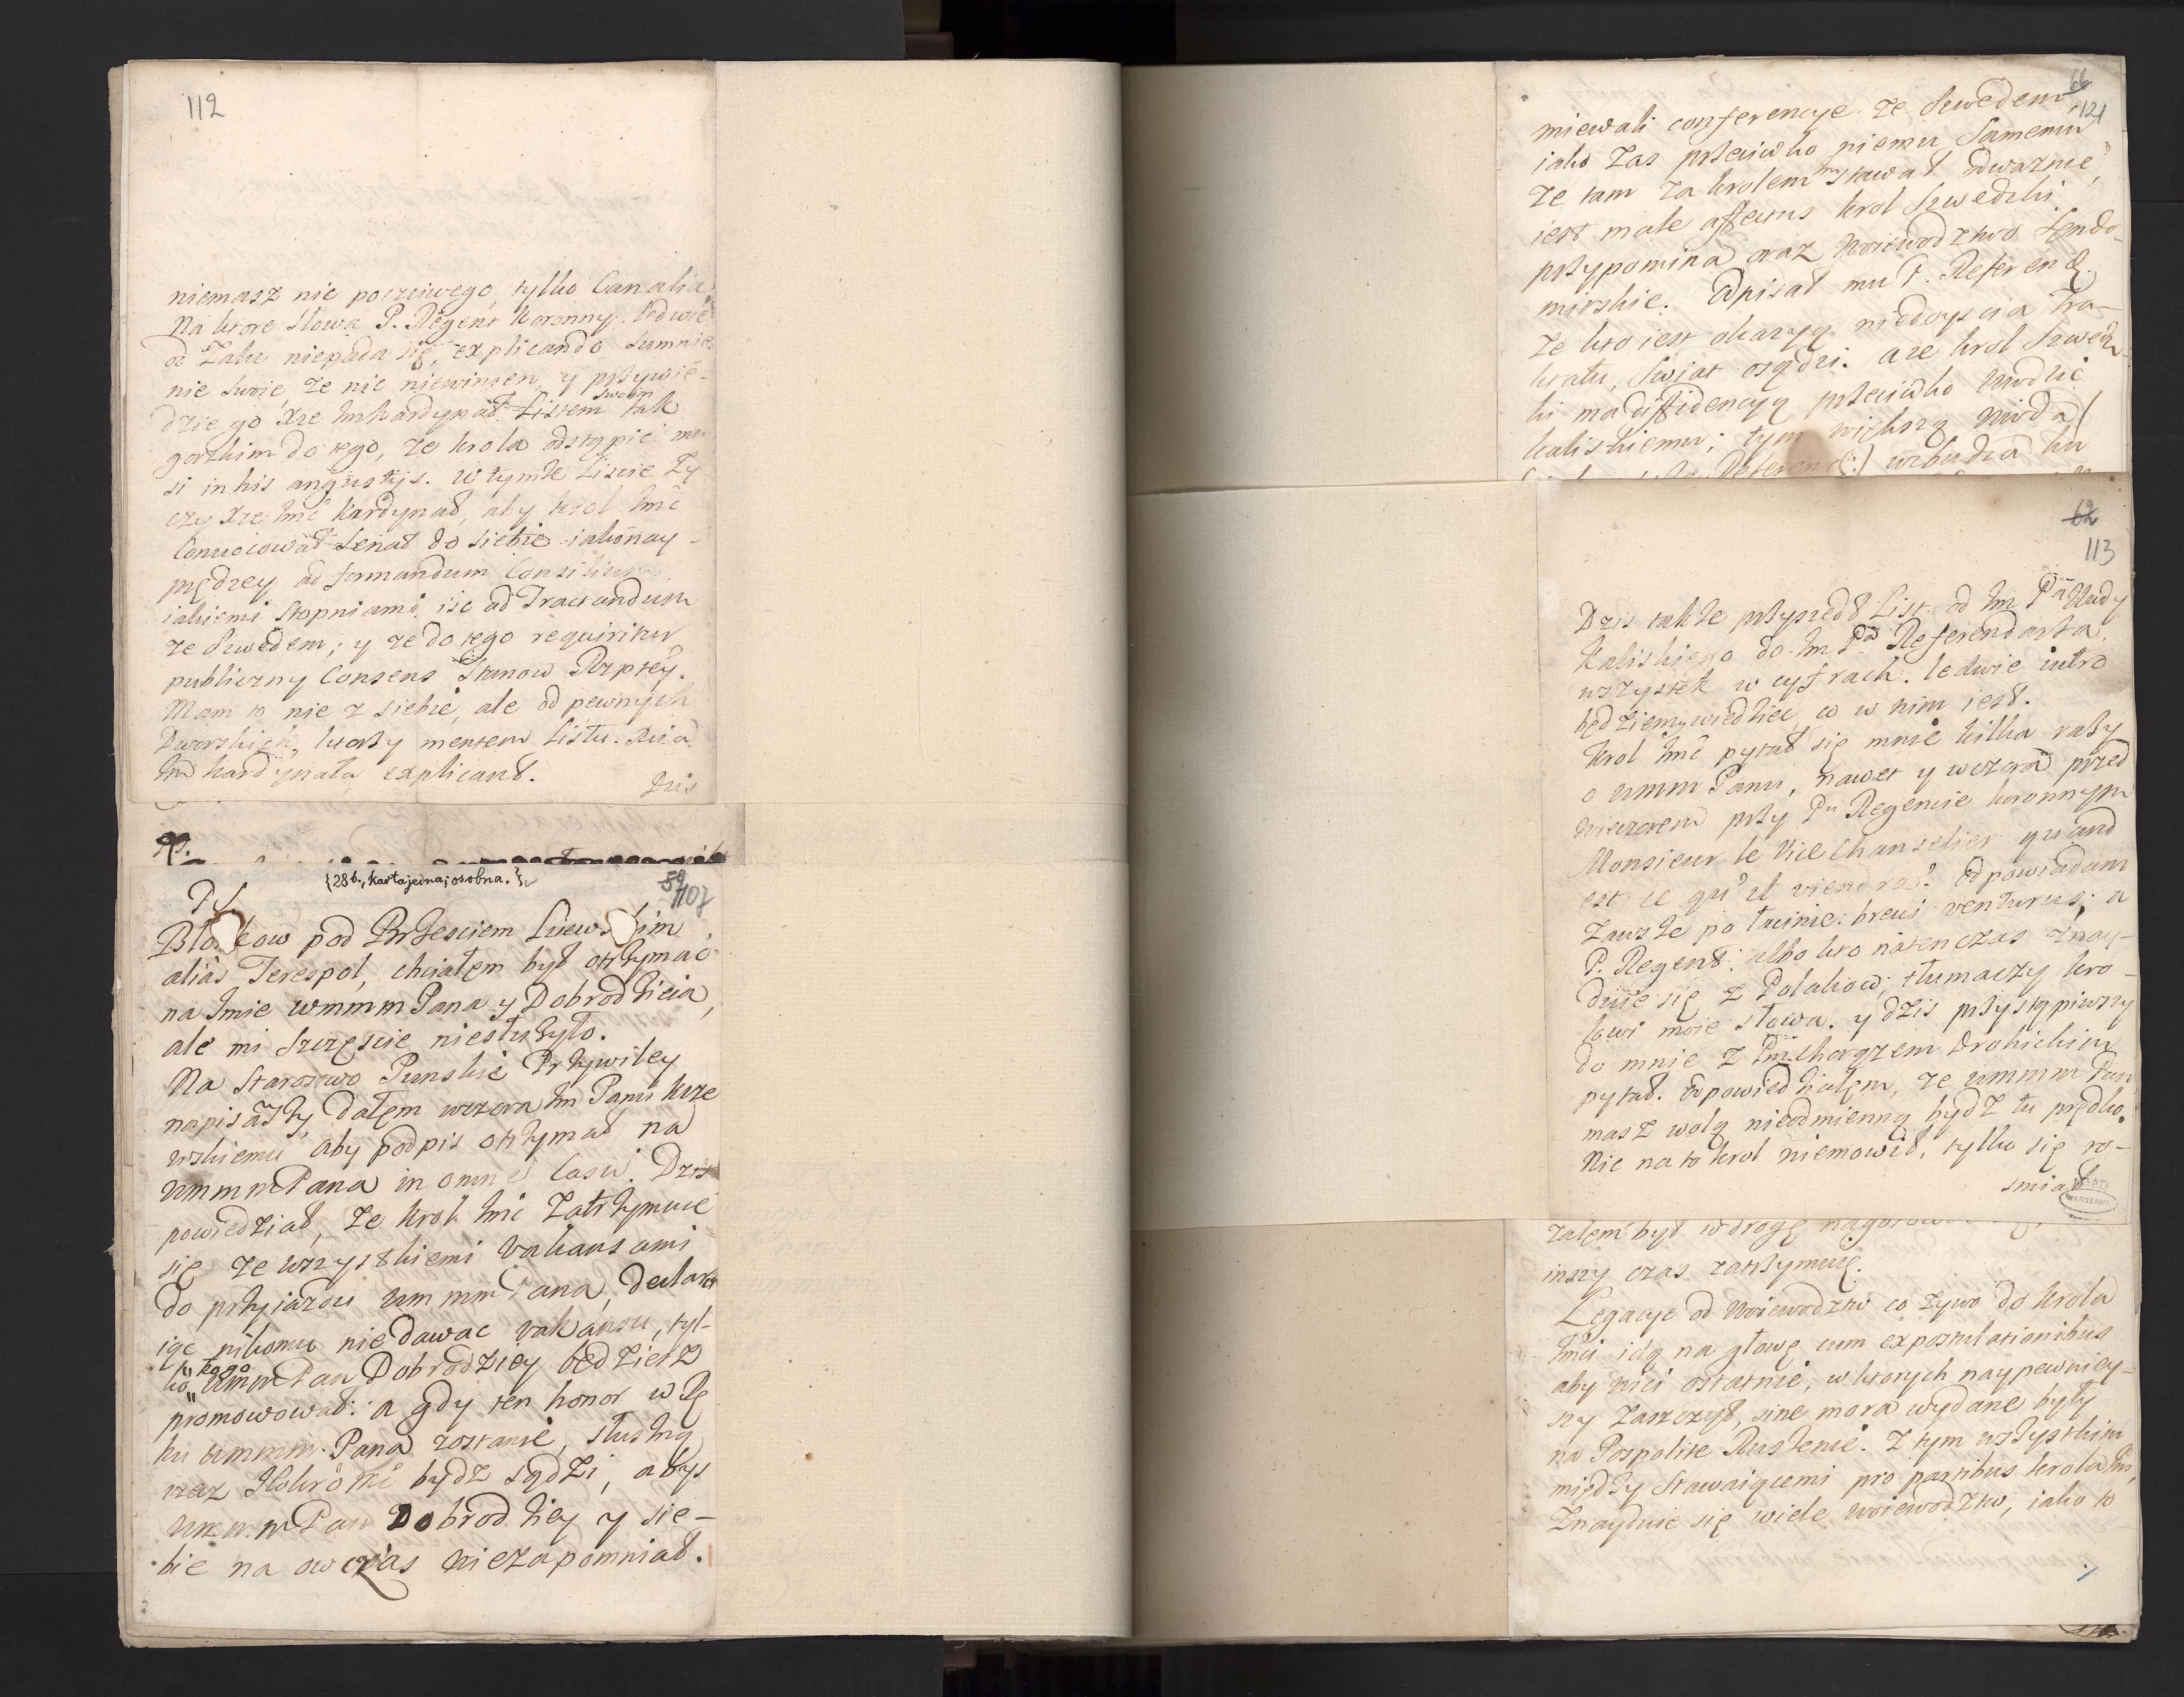 112
niemasz nic poczciwego, tylko Canalia
Na ktore słowa P. Regent Koronny ledwie
od Żalu niepada się, explicando sumnie
nie swoie, że nic niewinien, y przywie-
dzie go Xże Jmć Kardynał Listem swoim tak
gorzkim do tego, że krola odstąpić mu
si in his angustijs. W tymże Liscie ży
czy Xże Jmć Kardynał, aby krol Jmć
Convocował Senat do siebie iakonay-
prędzey ad formandum Consilium,
iakiemi stopniami isc ad Tractandum
ze Szwedem; y ze do tego requiritur
publiczny Consens Stanow Rzptey.
Mam to nie z siebie, ale od pewnych
Dworskich, ktorzy mentem Listu Xcia
Jmć kardynała explicant.
Dzis
{28 b., karta jedna, osobna.}
59
107
PS.
pod Brzesciem Litewskim
alias Terespol, chciałem był otrzymać
na Jmie wmmm Pana y Dobrodzieia,
ale mi Szczęscie niesłużyło.
Na Starostwo Punskie Przywiley
napisawszy, dałem wczora Jm Panu Krze
wskiemu aby podpis otrzymał na
wmmm Pana in omni casu. Dzis
powiedział, że krol Jmć zatrzymuie
się ze wszystkiemi Vakansami
do przyiazdu wmmm Pana, deklaru
iąc nikomu niedawac vakansu, tyl-
ko kogo wmm Pan Dobrodziey będziesz
promowował: a gdy ten honor w Rę
ku wmmm Pana zostanie, słuszną
rzecz bydz sądzi, abys
wmmm Pan Dobrodziey y sie-
bie na owczas niezapomniał.
66
121
miewali conferencye ze Szwedem,
iako zas przeciwko niemu samemu
ze tam za krolem Jm stawał odwaznie,
iest male affectus krol Szwedzki
przypomina oraz Woiewodztwo Sendo-
mirskie. Odpisał mu P. Referend.
ze kto iest okazyą niedoyscia Tra-
ktatu, Swiat osądzi. a ze krol Szwedz-
ki ma diffidencyą przeciwko Wodzie
kaliskiemu; tym większą Woda
wzbudza ku
62
113
Dzis takze przyszedł List od Jm Pa Wdy
Kaliskiego do Jm Pa Referendarza.
wszystek w cyfrach. ledwie iutro
będziemy wiedziec, co w nim iest.
Krol Jmć pytał się mnie kilka razy
o wmm Panu, nawet y wczora przed
wieczorem przy Pu Regencie koronnym
Monsieur le Vice Chanselier quand
est ce qu'il viendra? Odpowiadam
zawsze po łacinie: brevi venturus; a
P. Regent: albo kto natenczas znay-
duie się z Polakow, tłumaczy kro-
lowi moie słowa. y dzis przystąpiwszy
do mnie z Pm Chorązem Drohickim
pytał. Odpowiedziałem, ze wmmm Pan
masz wolą nieodmienną bydz tu prędko.
Nic na to krol niemowił, tylko się ro-
smiał
AGAD
WARSZAWA
załem był w drogę
inszy czas zatrzymuię.
Legacye od Woiewodztw co zywo do krola
Jmci idą na głowę cum expostulationibus
aby wici ostatnie, w ktorych naypewniey-
szy zaszczyt, sine mora wydane były
na Pospolite Ruszenie. Z tym wszystkim
między stawaiącemi pro partibus krola Jm,
Znayduie się wiele woiewodztw, iako to